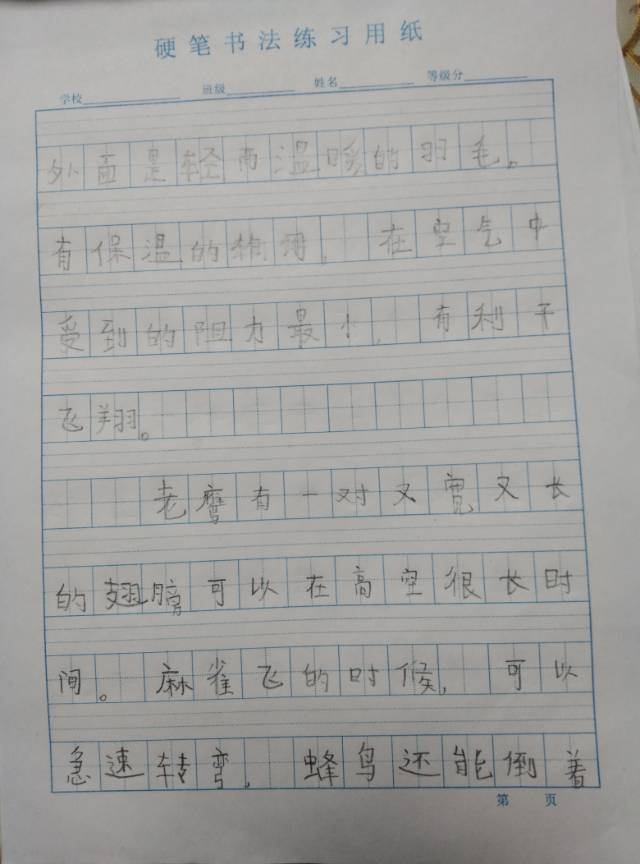 硬笔书法练习用纸
学校 班级 姓名 等级分
外面是轻而温暖的羽毛。
有保温的 在空气中
受到的阻力最小,有利于
飞翔。
老鹰有一对又宽又长
的翅膀可以在高空很长时
间。麻雀飞的时候,可以
急速转弯,蜂鸟还能倒着
第 页